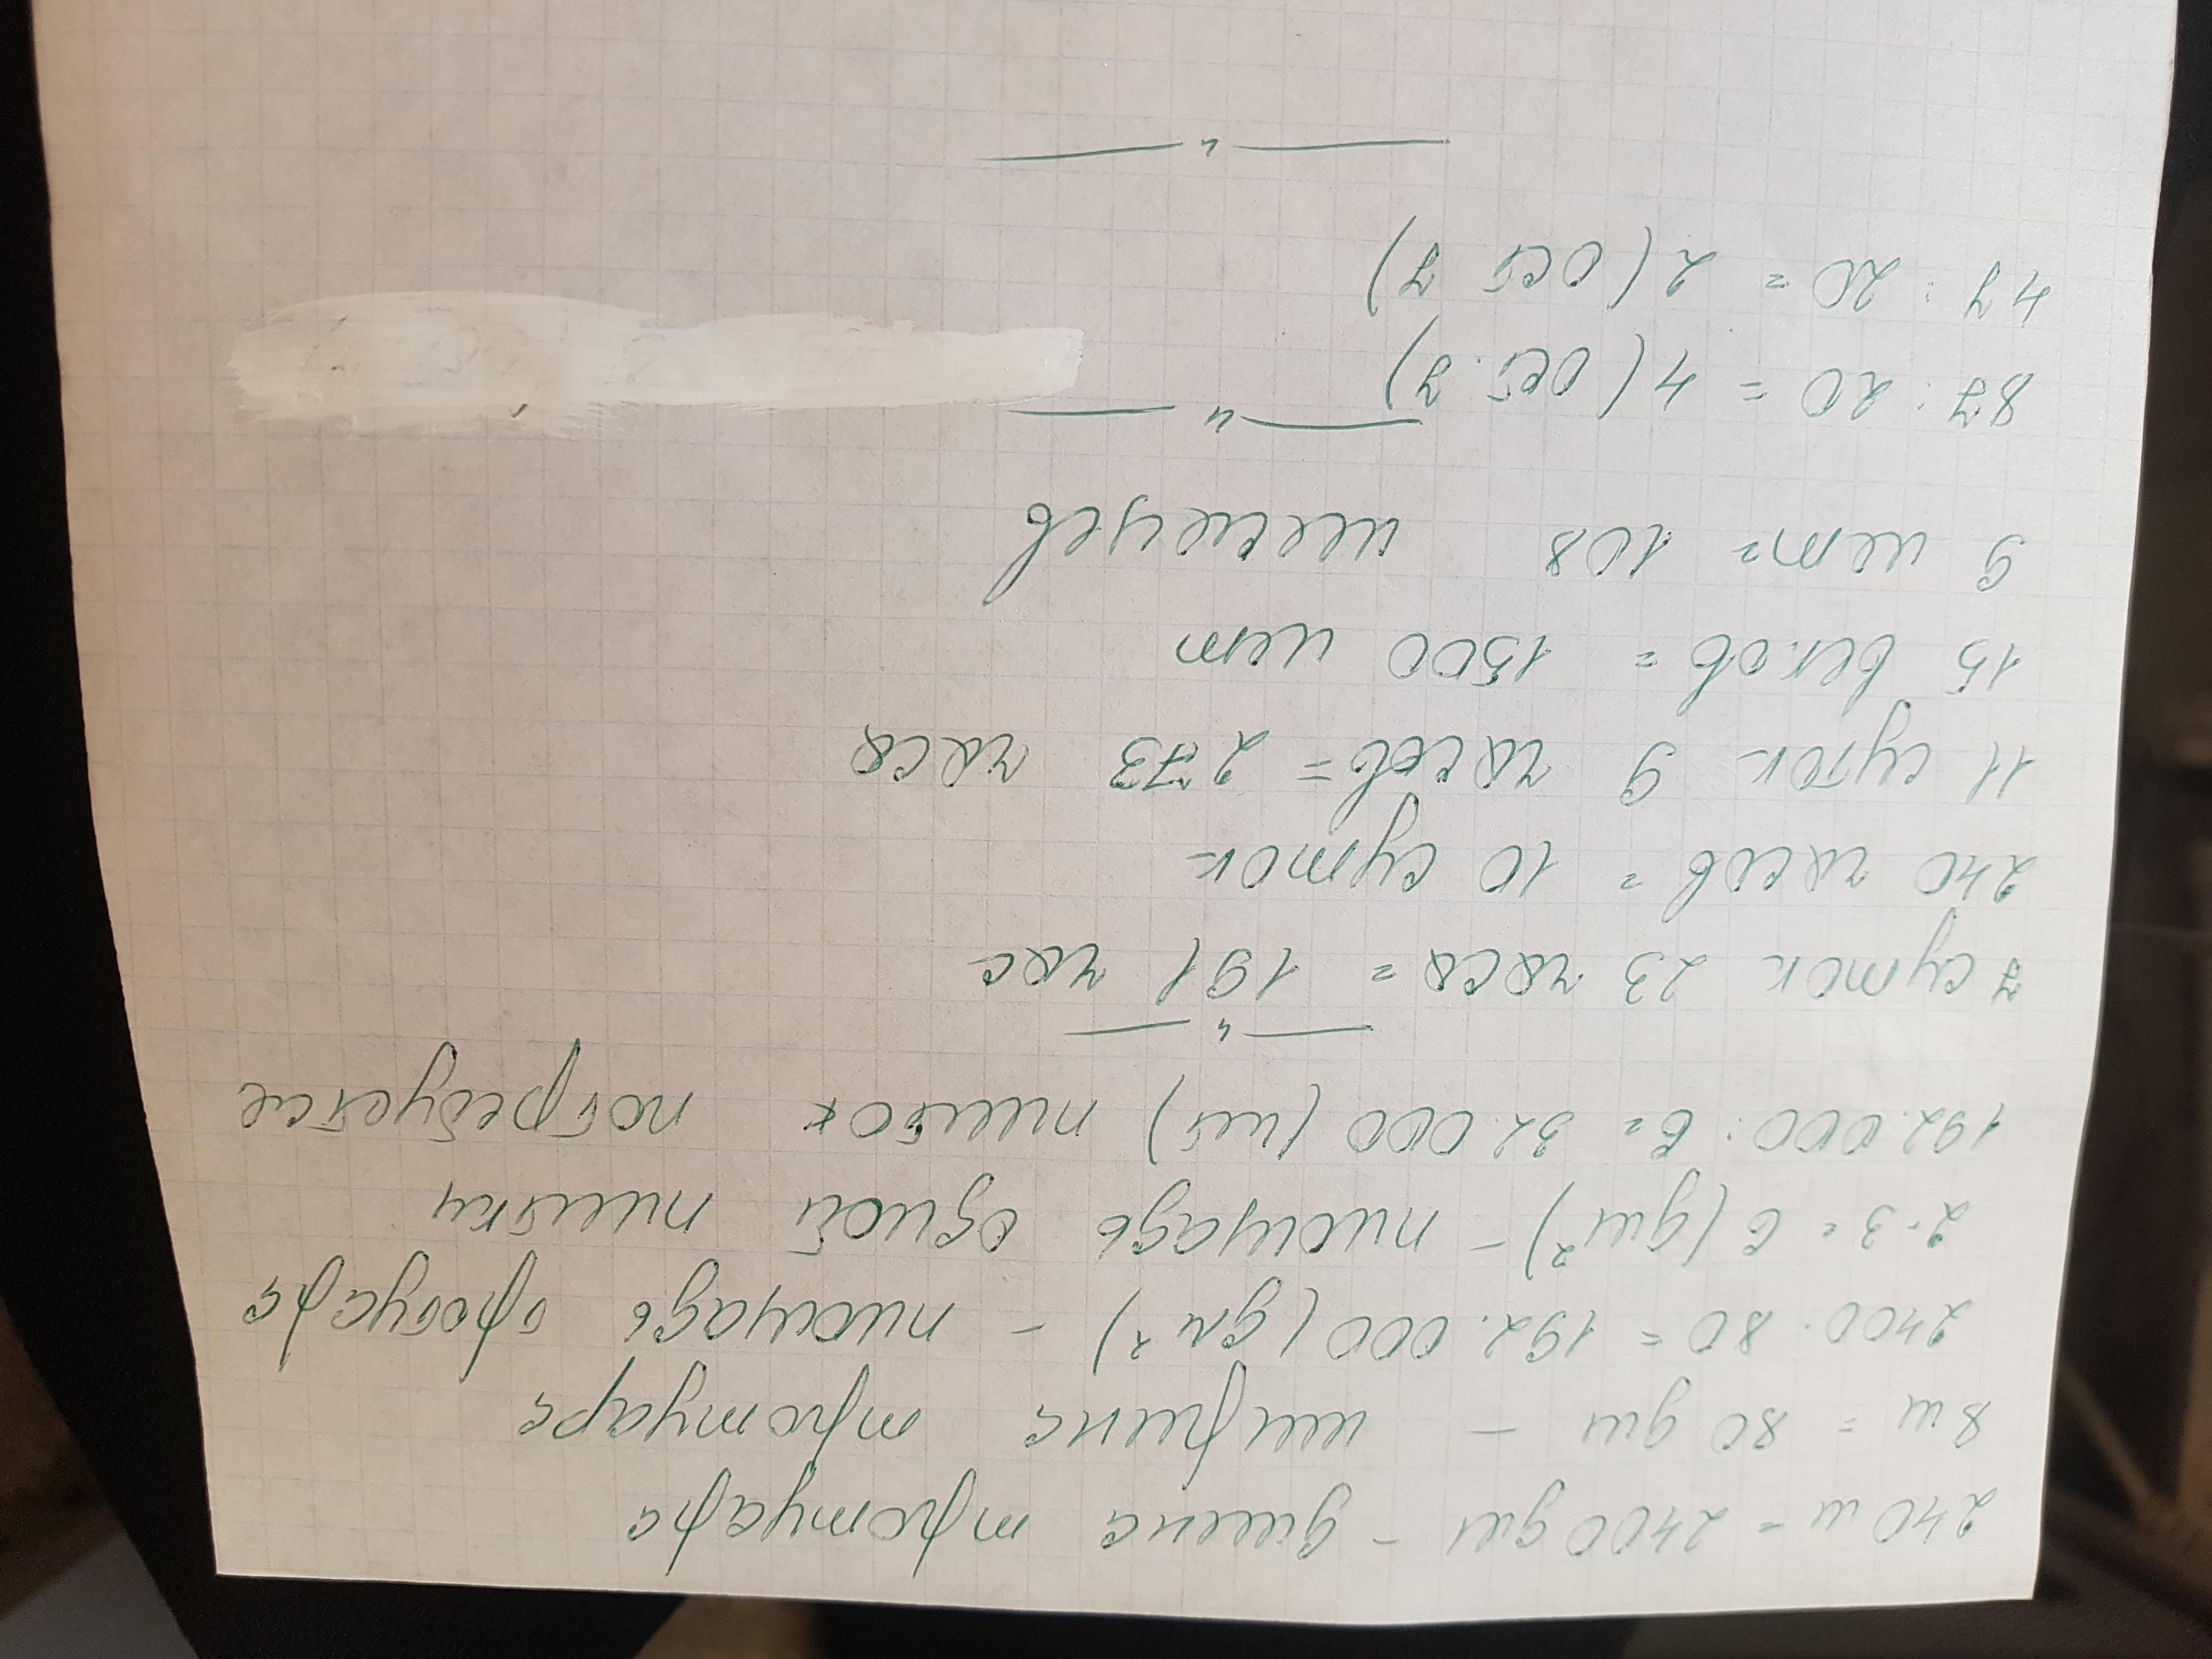 240 м = 2400 дм - длина тротуара
8 м = 80 дм - ширина тротуара
2400 · 80 = 192.000 (дм²) - площадь тротуара
2·3=6 (дм²) - площадь одной плитки
192.000 : 6 = 32.000 (шт) плиток потребуется
— " —
7 суток 23 часа = 191 час
240 часов = 10 суток
11 суток 9 часов = 273 часа
15 веков = 1500 лет
9 лет = 108 месяцев
— " —
87 : 20 = 4 (ост. 7)
47 : 20 = 2 (ост 7)
— " —